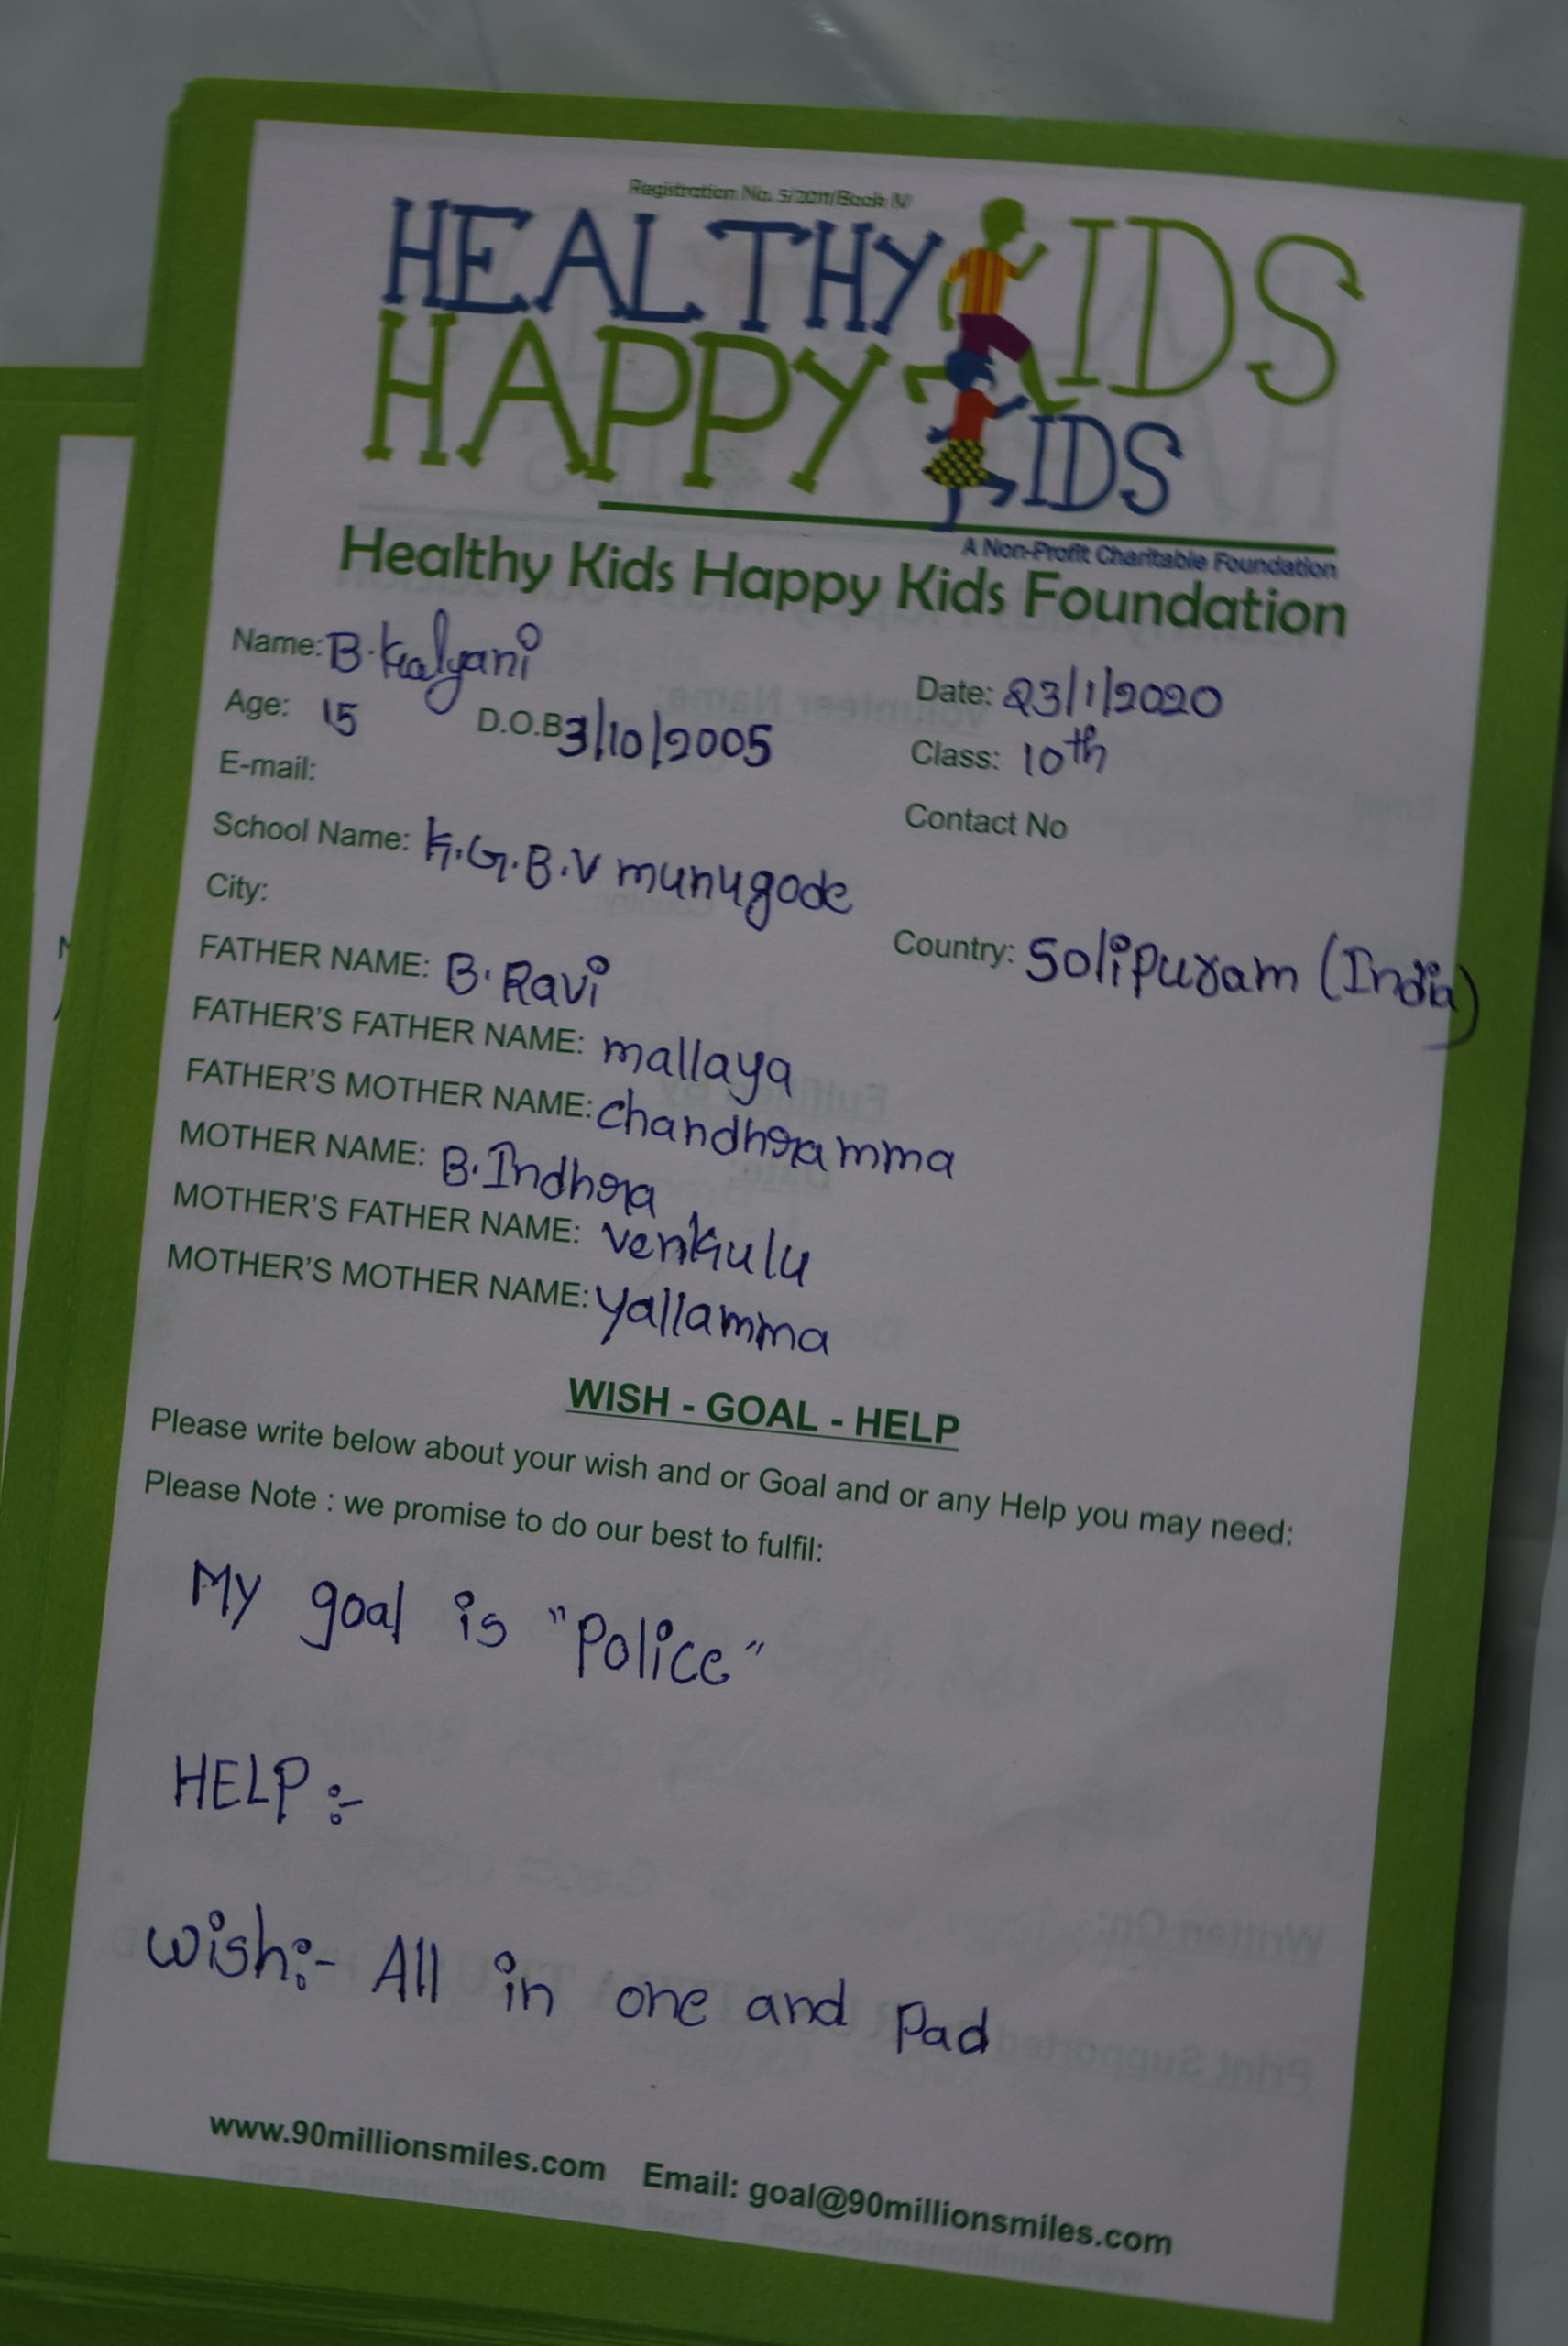 Registration No. 5/2011/Book IV/
HEALTHY KIDS
HAPPY KIDS
A Non-Profit Charitable Foundation
Healthy Kids Happy Kids Foundation
Name: B. Kalyani
Date: 23/1/2020
Age: 15 D.O.B 3/10/2005
Class: 10th
E-mail:
Contact No
School Name: K.G.B.V munugode
City:
Country: Solipuram (India)
FATHER NAME: B. Ravi
FATHER'S FATHER NAME: mallaya
FATHER'S MOTHER NAME: chandhramma
MOTHER NAME: B. Indhra
MOTHER'S FATHER NAME: venkulu
MOTHER'S MOTHER NAME: yallamma
WISH - GOAL - HELP
Please write below about your wish and or Goal and or any Help you may need:
Please Note : we promise to do our best to fulfil:
My goal is "Police"
HELP :-
Wish:- All in one and Pad
www.90millionsmiles.com Email: goal@90millionsmiles.com